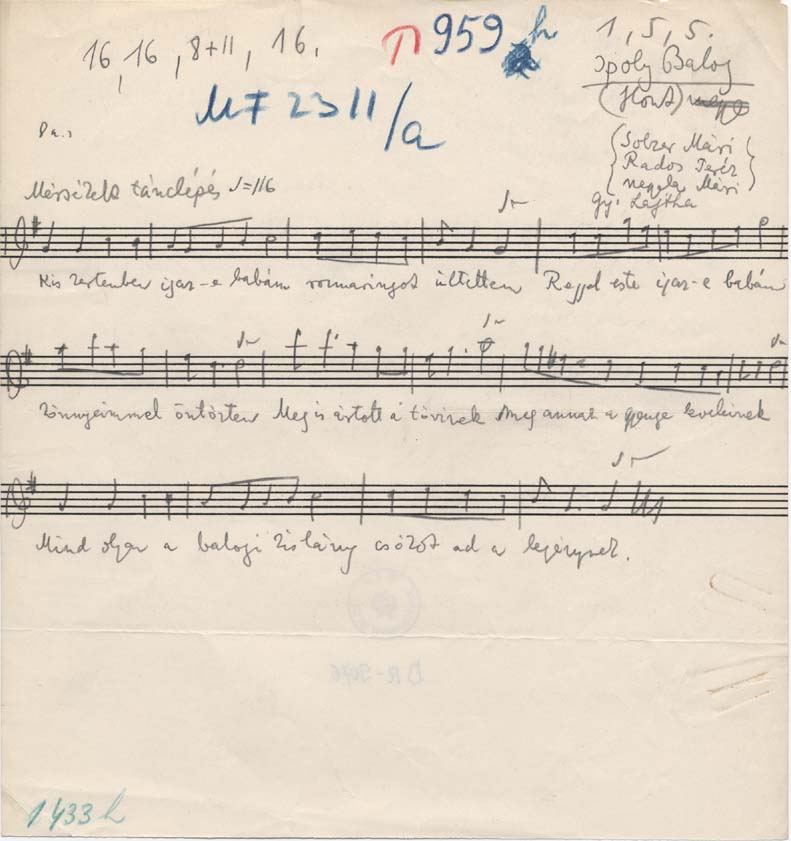 16, 16, 8+11, 16.
959 h
1, 5, 5.
Ipoly Balog
(Hont)
MF 2311/a
Solzer Mári
Rados Teréz
Mári
Gy: Lajtha
Mérsékelt tánclépés ♩=116
Kis kertemben igaz-e babám rozmaringot ültettem Reggel este igaz-e babám
könnyeimmel öntöztem Meg is ártott a tövisek Meg annak a gyenge
Mind olyan a balogi kislány csókot ad a legénynek.
DR-5076
1433 h